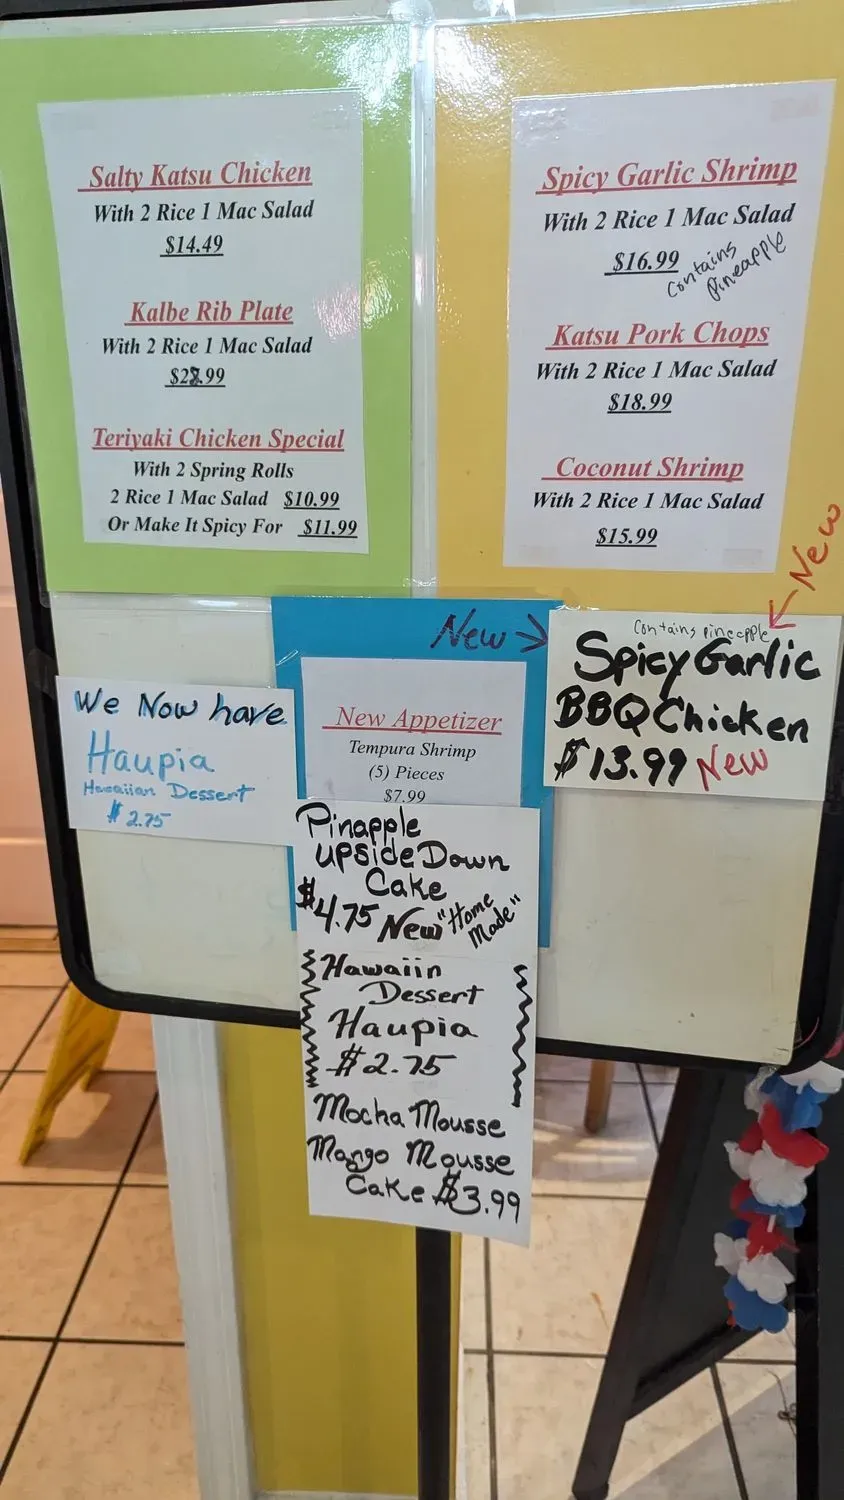 Salty Katsu Chicken
With 2 Rice 1 Mac Salad
$14.49
Kalbe Rib Plate
With 2 Rice 1 Mac Salad
Teriyaki Chicken Special
With 2 Spring Rolls
2 Rice 1 Mac Salad $10.99
Or Make It Spicy For $11.99
Spicy Garlic Shrimp
With 2 Rice 1 Mac Salad
$16.99
Contains
Pineapple
Katsu Pork Chops
With 2 Rice 1 Mac Salad
$18.99
Coconut Shrimp
With 2 Rice 1 Mac Salad
$15.99
New
New
Contains pineapple
Spicy Garlic
BBQ Chicken
$13.99 New
We Now have
Haupia
Hawaiian Dessert
$2.75
New Appetizer
Tempura Shrimp
(5) Pieces
$7.99
Pinapple
upside Down
Cake
$4.75 New "Home
Made"
Hawaiin
Dessert
Haupia
$2.75
Mocha Mousse
Mango Mousse
Cake $3.99